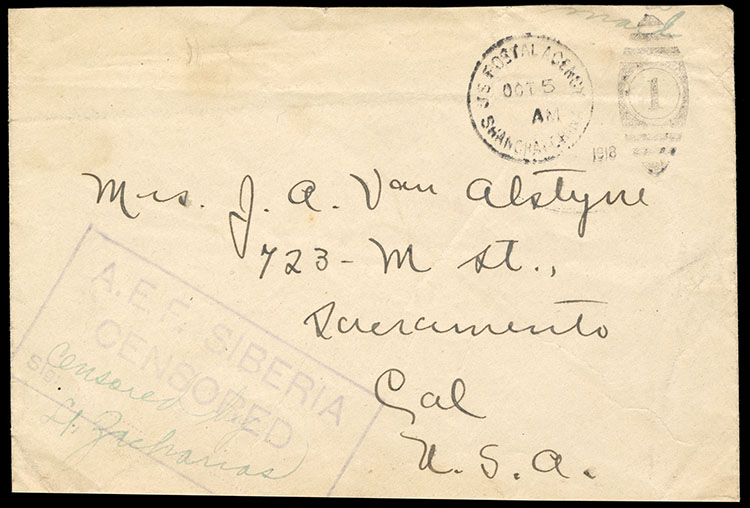 mail
U.S. POSTAL AGENCY
OCT 5
AM
SHANGHAI CHINA
1918
1
Mrs. J. A. Van Alstyne
723 - M St.,
Sacramento
Cal
U. S. A.
A. E. F. SIBERIA
CENSORED
Censored by
Lt. Zacharias